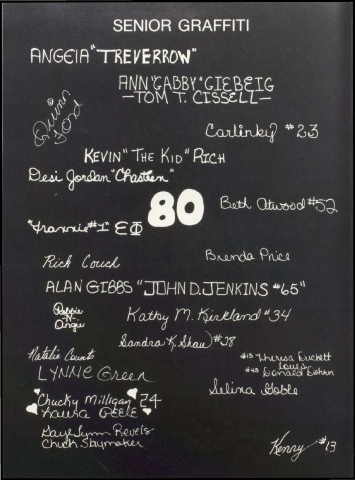 SENIOR GRAFFITI
ANGEIA "TREVERROW"
ANN "GABBY" GIEBEIG
-TOM T. CISSELL-
Quinn Ford
Carlinky #23
KEVIN "THE KID" RICH
Desi Jordan "Chasteen"
80
Beth Atwood #52
"Frannie #1" ΕΦ
Rick Couch
Brenda Price
ALAN GIBBS "JOHN D. JENKINS #65"
Angie
Kathy M. Kirkland #34
Sandra K. Shaw #38
Natalie Counts
#15 Theresa Duckett
Loves
#43 Donald Dohrn
LYNNE Green
Selina Goble
Chucky Milligan 24
Laura PEELE
Gaye Lynn Revels
Chuck Slaymaker
Kenny #13